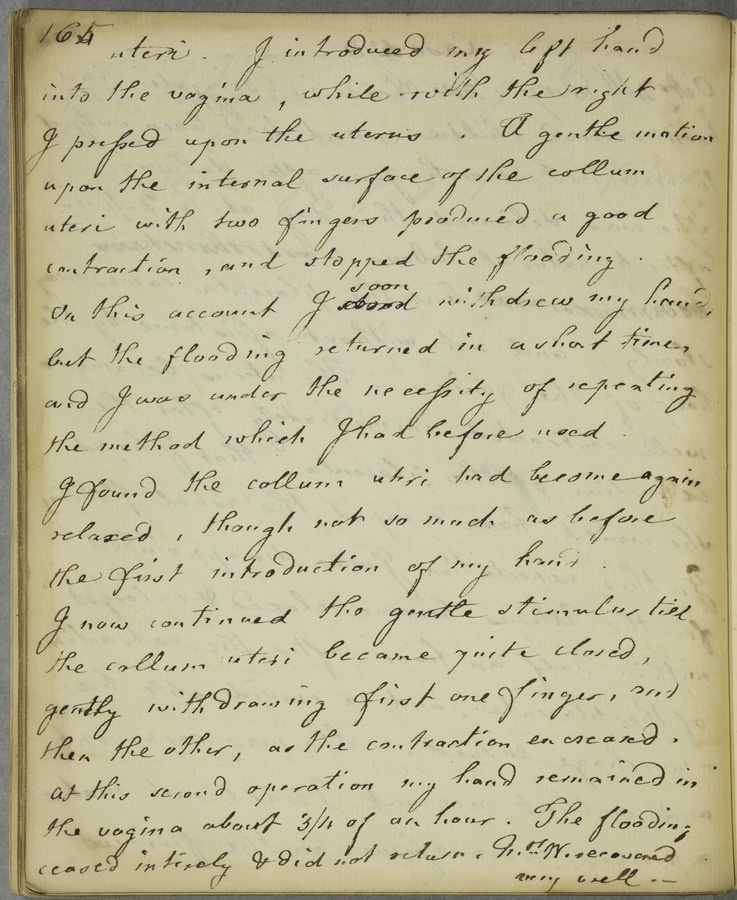 165
uteri. I introduced my left hand
into the vagina, while with the right
I pressed upon the uterus. A gentle motion
upon the internal surface of the collum
uteri with two fingers produced a good
contraction, and stopped the flooding.
On this account I soon withdrew my hand,
but the flooding returned in a short time,
and I was under the necessity of repeating
the method which I had before used.
I found the collum uteri had become again
relaxed, though not so much as before
the first introduction of my hand.
I now continued the gentle stimulus till
the collum uteri became quite closed,
gently withdrawing first one finger, and
then the other, as the contraction encreased.
At this second operation my hand remained in
the vagina about 3/4 of an hour. The flooding
ceased intirely & did not return. Mrs. W. recovered
very well —